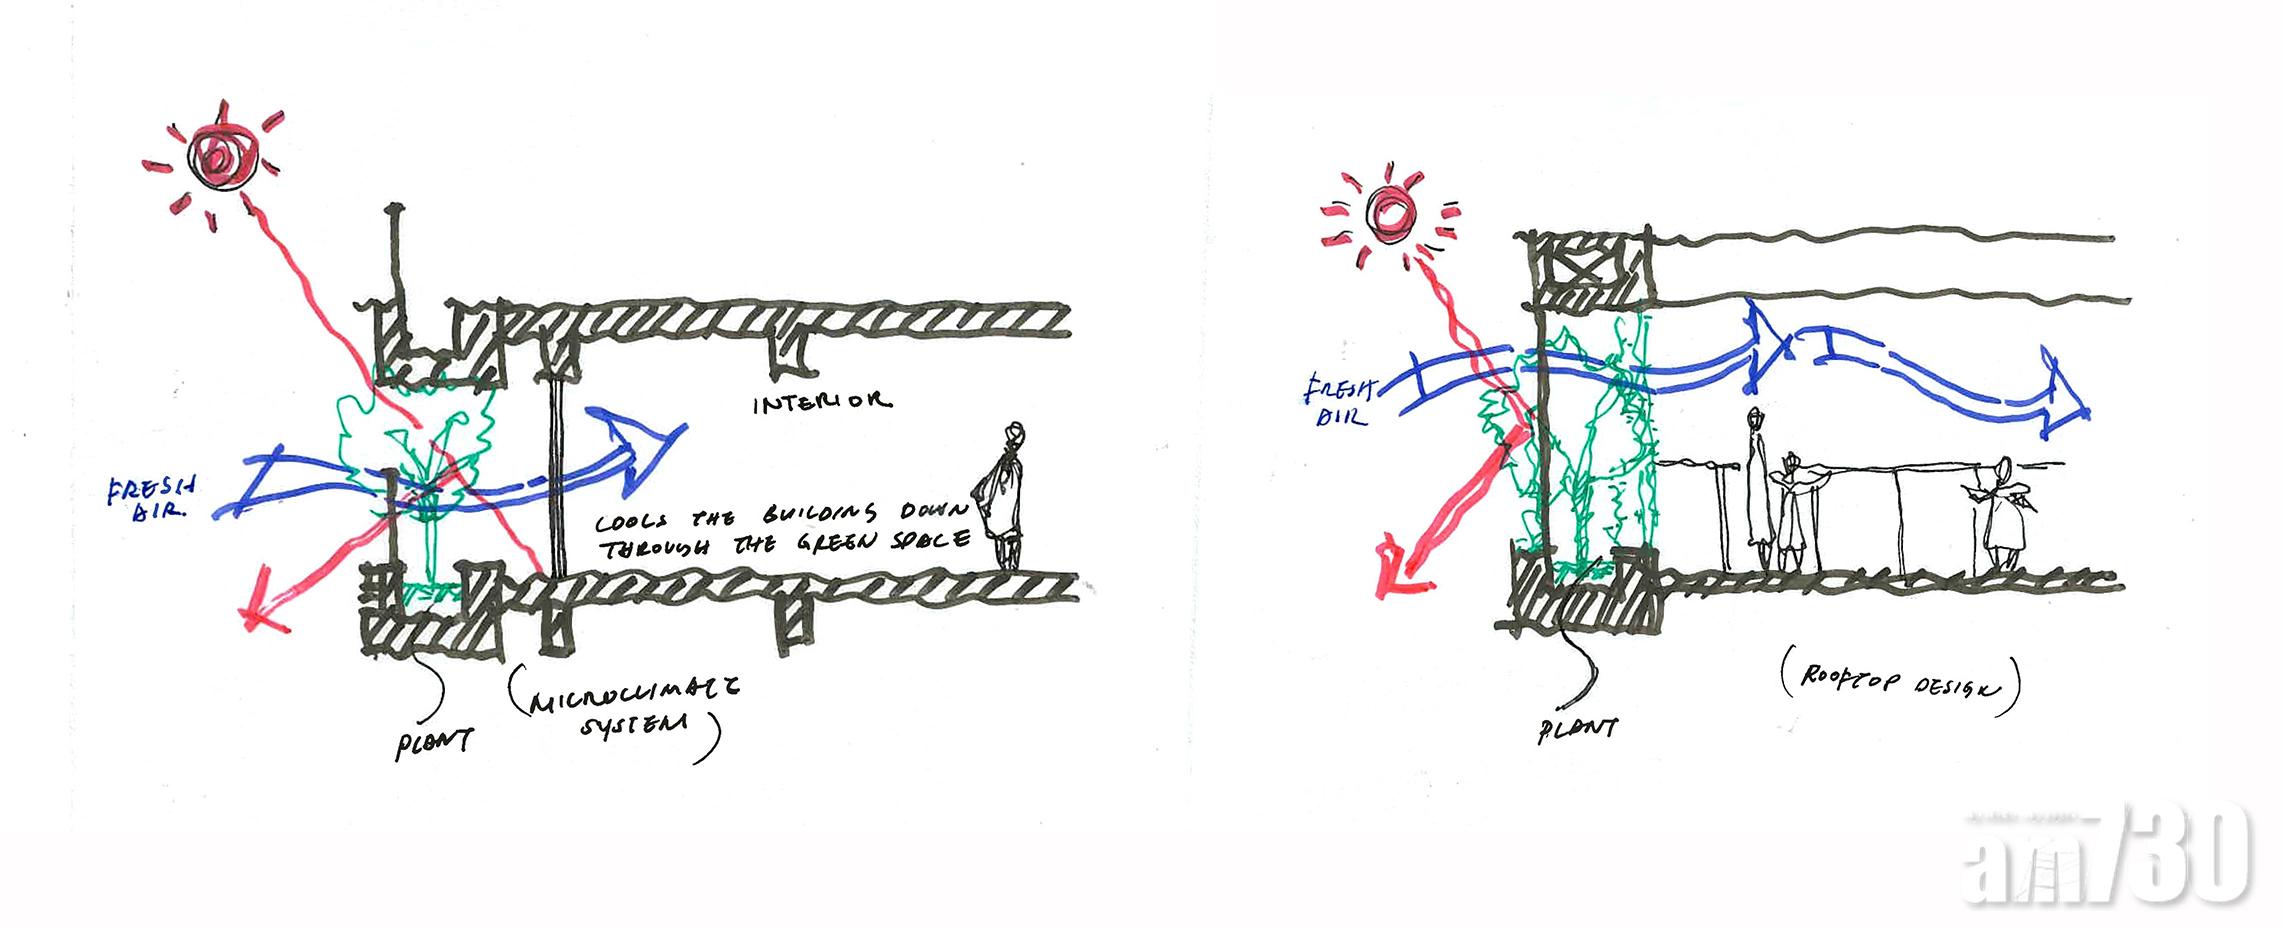 INTERIOR
FRESH
AIR.
COOLS THE BUILDING DOWN
THROUGH THE GREEN SPACE
PLANT
(MICROCLIMATE
SYSTEM)
FRESH
AIR
PLANT
(ROOFTOP DESIGN)
am730